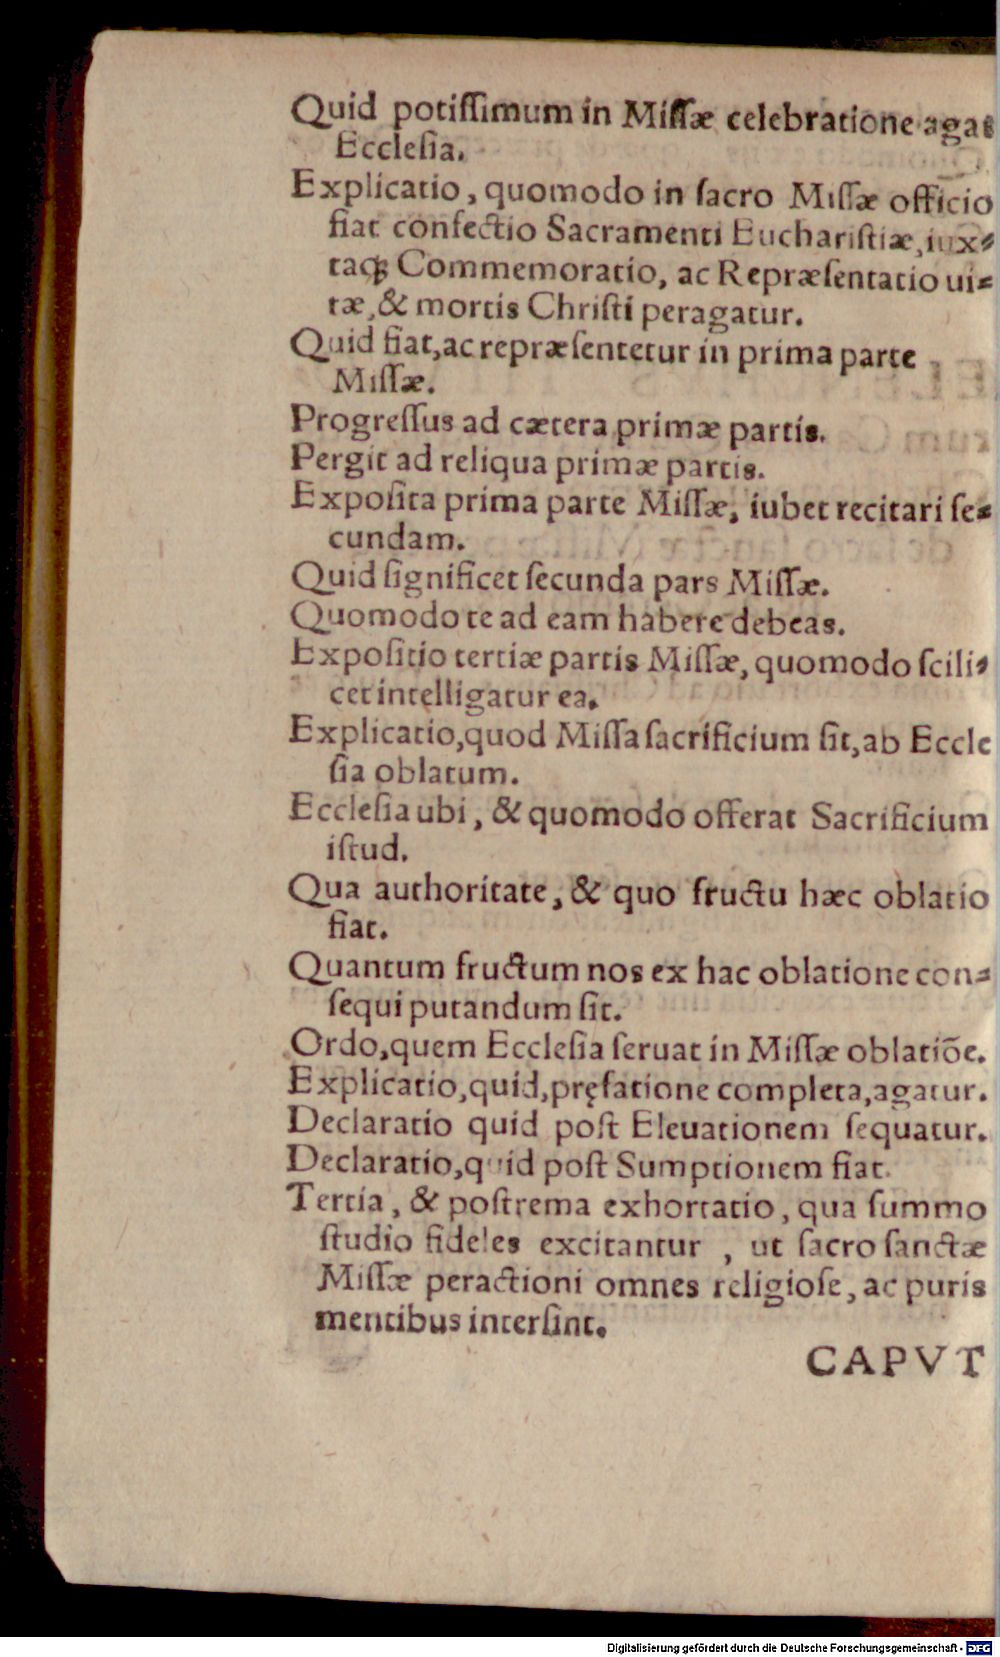 Quid potiſſimum in Miſſæ celebratione agat
Eccleſia.
Explicatio, quomodo in ſacro Miſſæ officio
fiat confectio Sacramenti Euchariſtiæ, iux-
taqꝫ Commemoratio, ac Repræſentatio ui-
tæ, & mortis Chriſti peragatur.
Quid fiat, ac repræſentetur in prima parte
Miſſæ.
Progreſſus ad cætera primæ partis.
Pergit ad reliqua primæ partis.
Expoſita prima parte Miſſæ, iubet recitari ſe-
cundam.
Quid ſignificet ſecunda pars Miſſæ.
Quomodo te ad eam habere debeas.
Expoſitio tertiæ partis Miſſæ, quomodo ſcili-
cet intelligatur ea.
Explicatio, quod Miſſa ſacrificium ſit, ab Eccle
ſia oblatum.
Eccleſia ubi, & quomodo offerat Sacrificium
iſtud.
Qua authoritate, & quo fructu hæc oblatio
fiat.
Quantum fructum nos ex hac oblatione con-
ſequi putandum ſit.
Ordo, quem Eccleſia ſeruat in Miſſæ oblatiõe.
Explicatio, quid, pręfatione completa, agatur.
Declaratio quid poſt Eleuationem ſequatur.
Declaratio, quid poſt Sumptionem fiat.
Tertia, & poſtrema exhortatio, qua ſummo
ſtudio fideles excitantur, ut ſacro ſanctæ
Miſſæ peractioni omnes religioſe, ac puris
mentibus interſint.
CAPVT
Digitalisierung gefördert durch die Deutsche Forschungsgemeinschaft - DFG